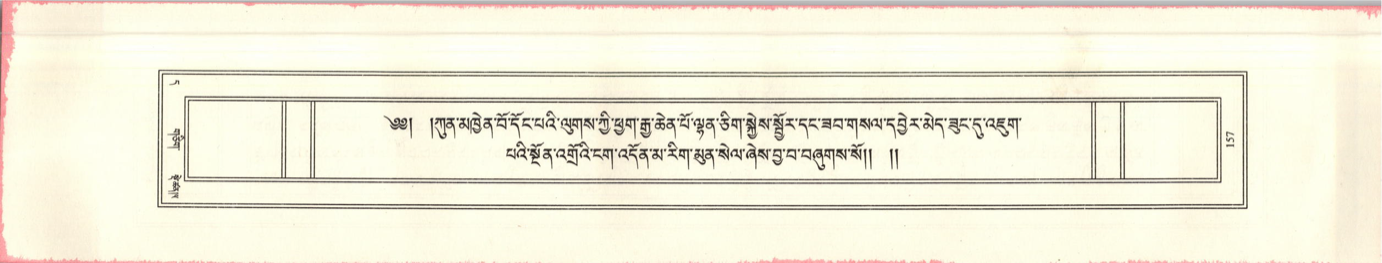 ༄༅། །ཀུན་མཁྱེན་བོ་དོང་པའི་ལུགས་ཀྱི་ཕྱག་རྒྱ་ཆེན་པོ་ལྷན་ཅིག་སྐྱེས་སྦྱོར་དང་ཟབ་གསལ་དབྱེར་མེད་ཟུང་དུ་འཇུག་
པའི་སྔོན་འགྲོའི་ངག་འདོན་མ་རིག་མུན་སེལ་ཞེས་བྱ་བ་བཞུགས་སོ།། །།
ཏ
གཅིག
157